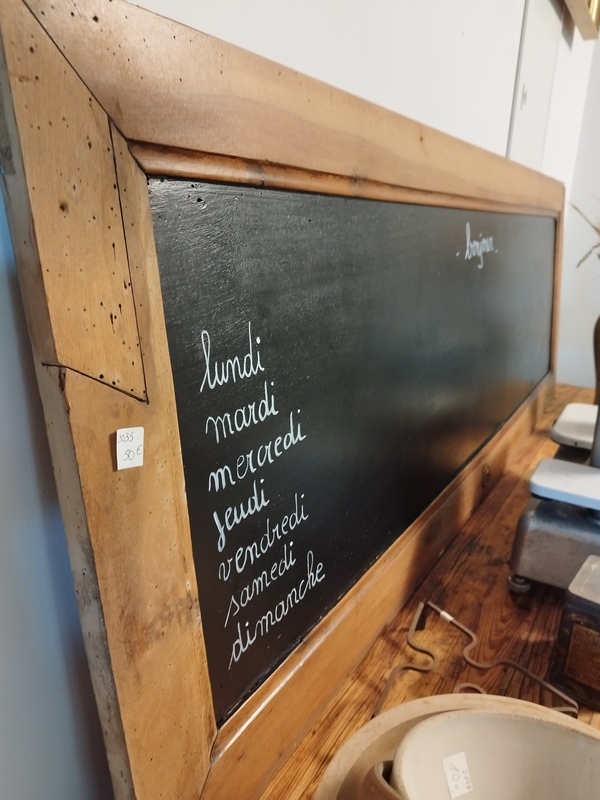 - bonjour -
lundi
mardi
mercredi
jeudi
vendredi
samedi
dimanche
50 €